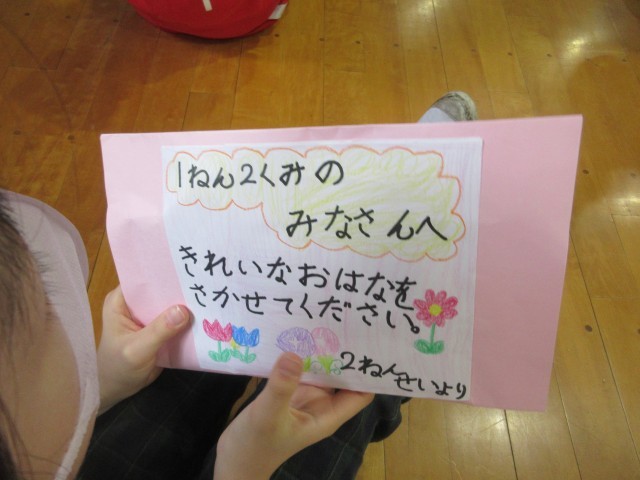 1ねん2くみの
みなさんへ
きれいなおはなを
さかせてください。
2ねんせいより